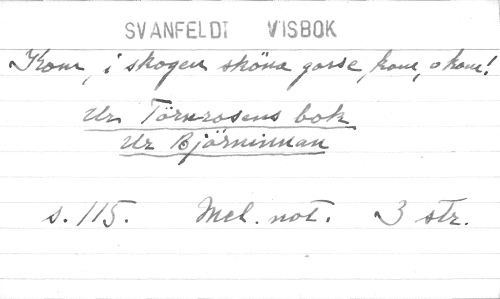 SVANFELDT VISBOK
Kom, i skogen sköna gosse, kom, o kom!
Ur Törnrosens bok
Ur Björninnan
s. 115. Mel. not. 3 str.